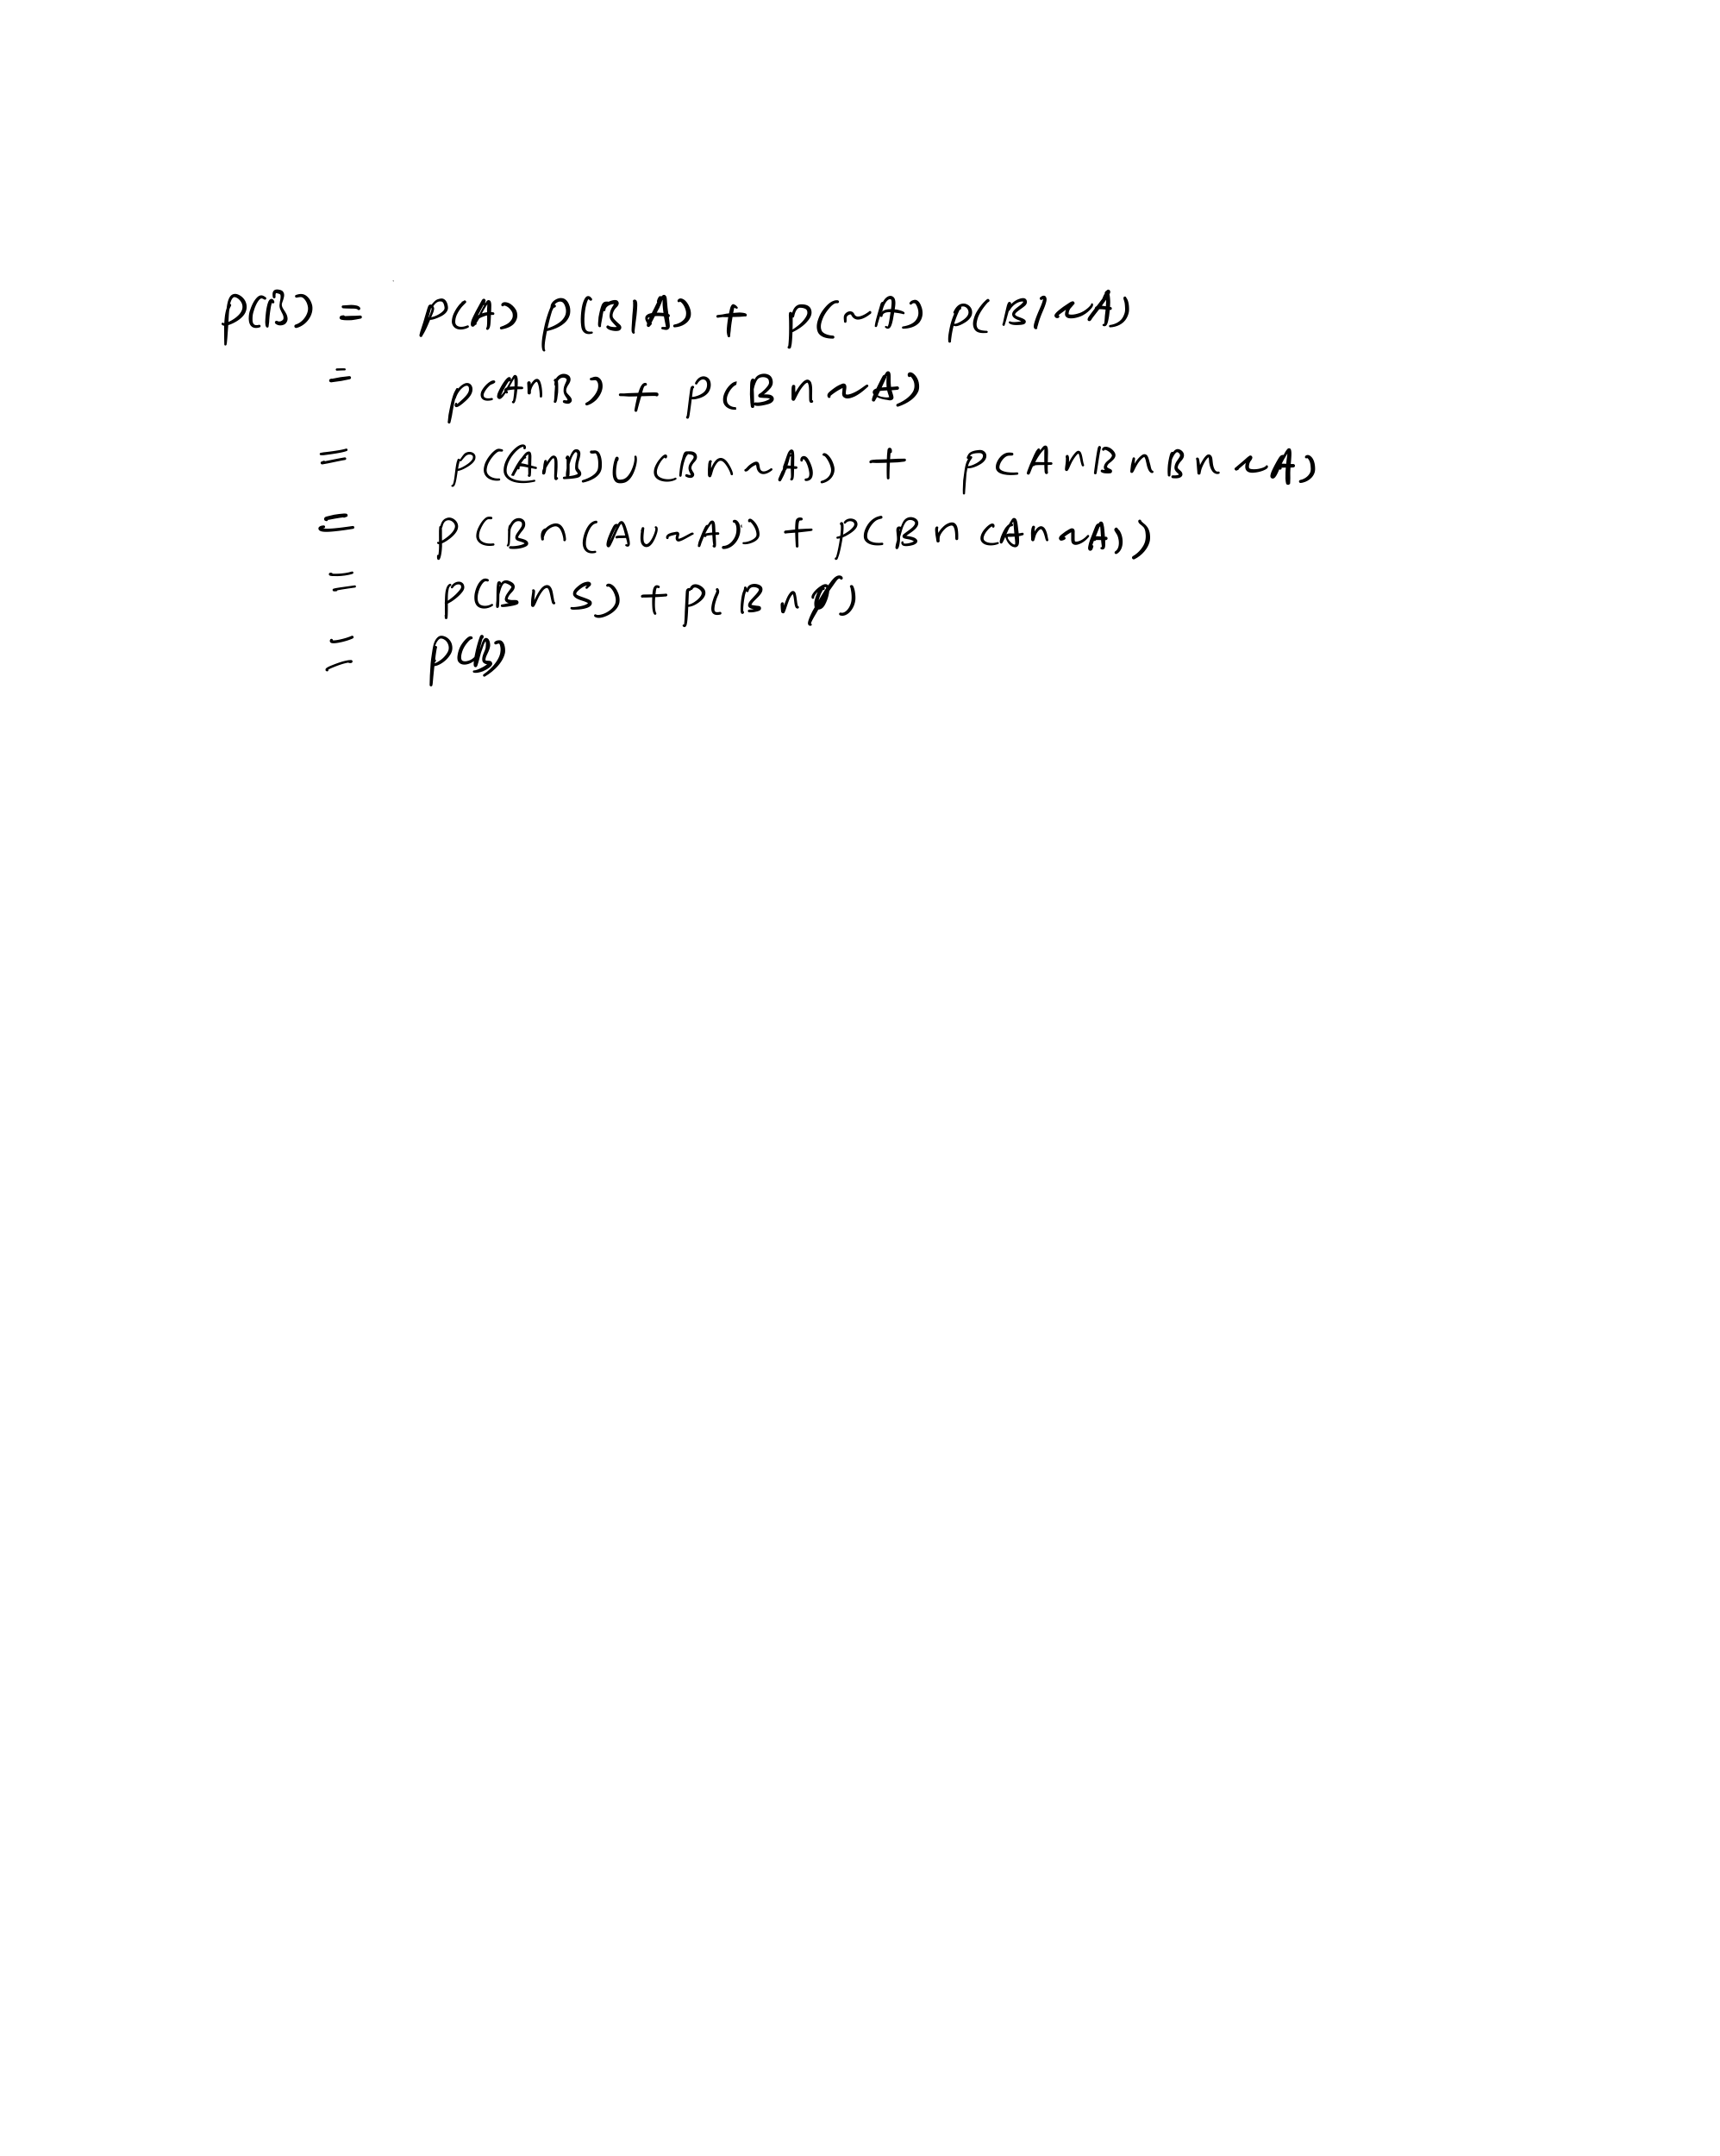 P(B) = P(A) P(B|A) + P(~A) P(B|~A)
= P(A∩B) + P(B∩~A)
= P((A∩B)∪(B∩~A)) + P(A∩B∩B∩~A)
= P(B∩(A∪~A)) + P(B∩(A∩~A))
= P(B∩S) + P(B∩∅)
= P(B)